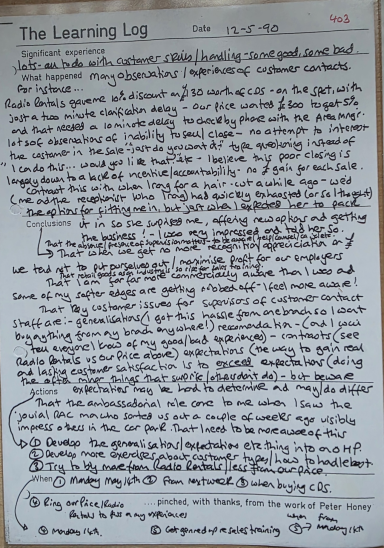 403
The Learning Log Date 12-5-90
Significant experience
lots - all to do with customer skills/handling - some good, some bad.
What happened Many observations/experiences of customer contacts.
For instance...
Radio Rentals gave me 10% discount on £130 worth of CDs - on the spot, with
just a two minute clarification delay - Our price wanted £200 to get 5%
and that needed a 10 minute delay to check by phone with the Area Mngr.
lots of observations of inability to sell/close - no attempt to interest
the customer in the sale - just do you want it? type questioning instead of
"I can do this... would you like that" - I believe this poor closing is
largely down to a lack of incentive/accountability - no £ gain for each sale.
Contrast this with when I rang for a hair-cut a while ago - well
me and the receptionist who I rang had quickly exhausted (or so I thought)
the options for fitting me in, but just when I expected her to pack
Conclusions it in so she surprised me, offering new options and getting
the business! - I was very impressed and told her so.
That the absence/presence of supervision matters - to
That when we get no more recognition/appreciation or £
we tend not to put ourselves out/maximise profit for our employers
That retail goods
That I am far far more commercially aware than I was and
some of my softer edges are getting rubbed off - I feel more aware!
That key customer issues for supervisors of customer contact
staff are:- generalisations (I got this hassle from one branch so I won't
buy anything from any branch anywhere!) recommendation - (and I will
tell everyone I know of my good/bad experiences) - contrasts (see
Radio Rentals vs Our Price above) expectations (the way to gain real
and lasting customer satisfaction is to exceed expectations (doing
the often minor things that surprise (others don't do) - but beware
expectations may be hard to determine and may/do differ
Actions That the ambassadorial role came to me when I saw the
jovial RAC man who sorted us out a couple of weeks ago visibly
impress others in the car park. That I need to be more aware of this
① Develop the generalisations/expectation etc thing into an OHP.
② Develop more exercises about customer types/how to handle best
③ Try to buy more from Radio Rentals/less from our price.
When ① Monday May 14th ② From next week ③ when buying CDs.
④ Ring Our Price/Radio .... pinched, with thanks, from the work of Peter Honey
Rentals to
④ Monday 14th. ⑤ Get genned up re sales training
when from
⑤ → Monday 14th